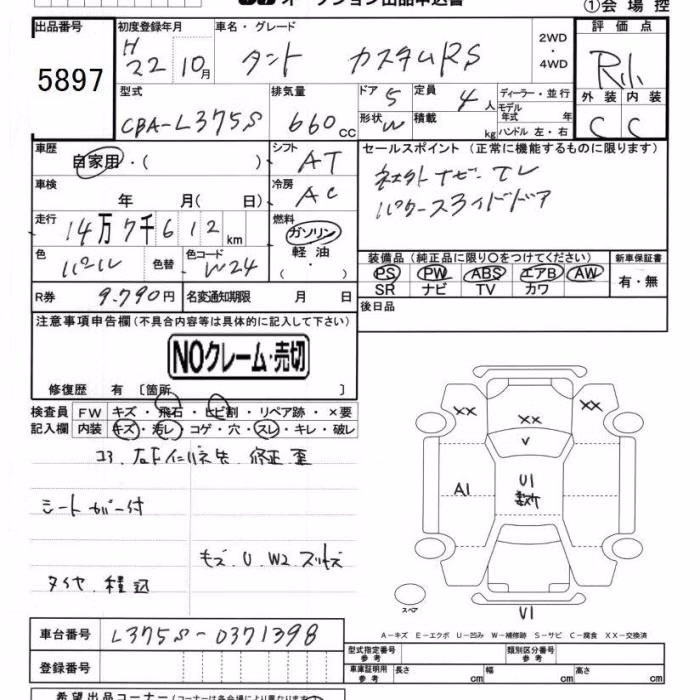 オークション出品申込書
①会場控
出品番号
5897
初度登録年月
H 22 10月
車名・グレード
タント カスタムRS
2WD・4WD
評価点
外装 内装
C C
型式
CBA-L375S
排気量
660 CC
ドア 5
形状 W
定員 4人
積載 kg
ディーラー・並行
モデル年式 年
ハンドル 左・右
車歴
自家用・( )
シフト
AT
車検
年 月( 日)
冷房
AC
走行
14万7千612 km
燃料
ガソリン・軽油・( )
色
パール
色替
色コード
W24
R券 9.790円
名変通知期限 月 日
セールスポイント(正常に機能するものに限ります)
パワースライドドア
装備品(純正品に限り○をつけてください)
PS PW ABS エアB AW
SR ナビ TV カワ
新車保証書
有・無
後日品
注意事項申告欄(不具合内容等は具体的に記入して下さい)
NOクレーム・売切
修復歴 有〔箇所 〕
検査員記入欄
FW キズ・飛石・ヒビ割・リペア跡・×要
内装 キズ・汚レ・コゲ・穴・スレ・キレ・破レ
シートカバー付
タイヤ 積込
XX XX XX
V
A1
U1
V1
スペア
A-キズ E-エクボ U-凹み W-補修跡 S-サビ C-腐食 XX-交換済
車台番号
L375S-0371398
登録番号
型式指定番号 参考
類別区分番号 参考
車庫証明用 参考
長さ cm 幅 cm 高さ cm
希望出品コーナー